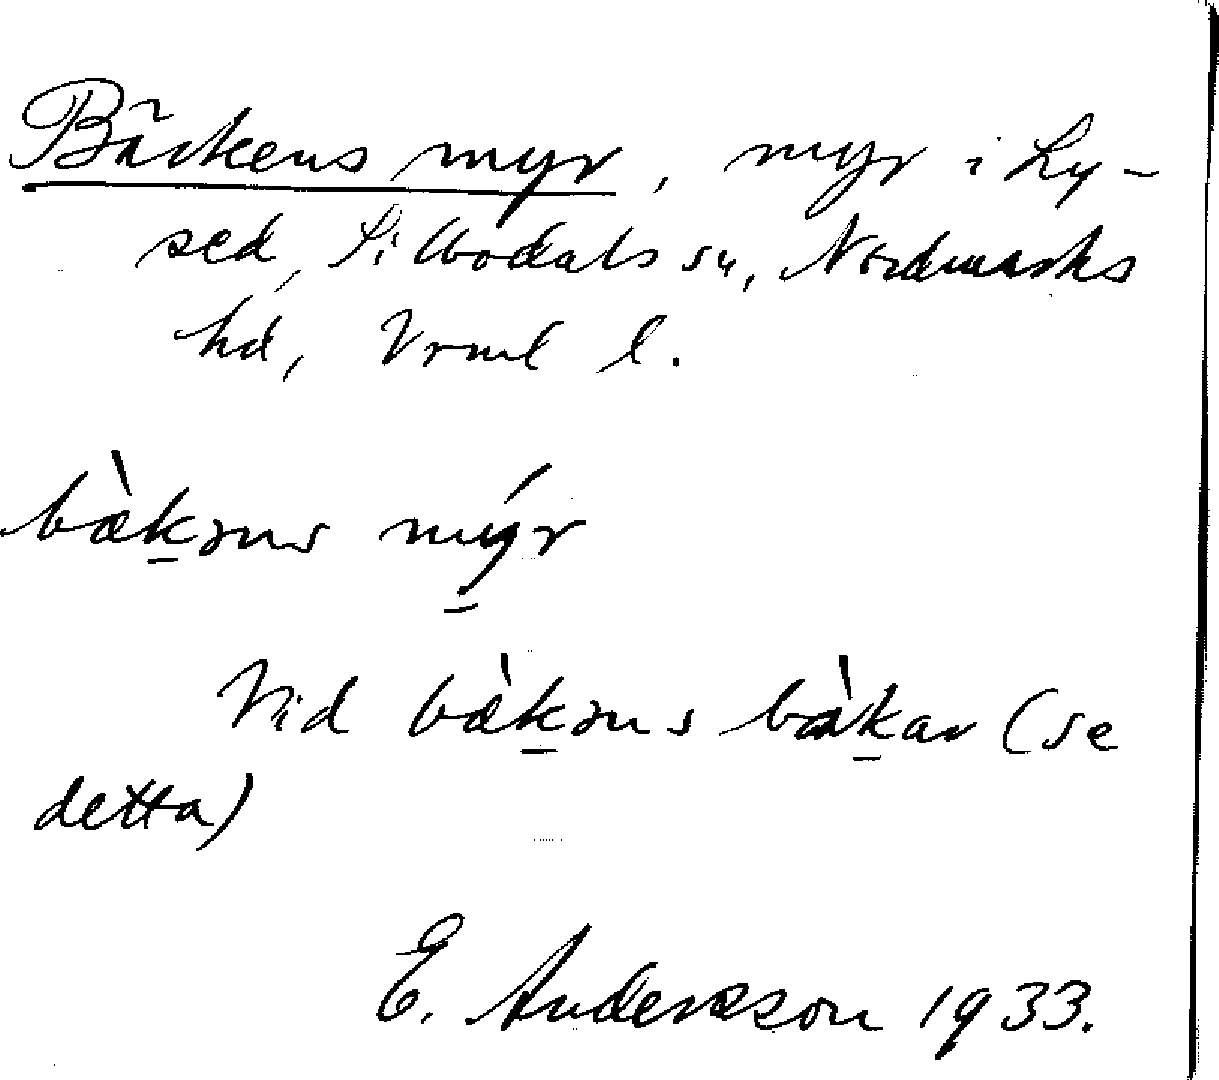 Bäckens myr, myr i Ly-
sed, Silbodals sn, Nordmarks
hd, Vrml l.
bæ̀k̠əns mýr
Vid bæ̀k̠əns bæ̀k̠ar (se
detta)
E. Andersson 1933.